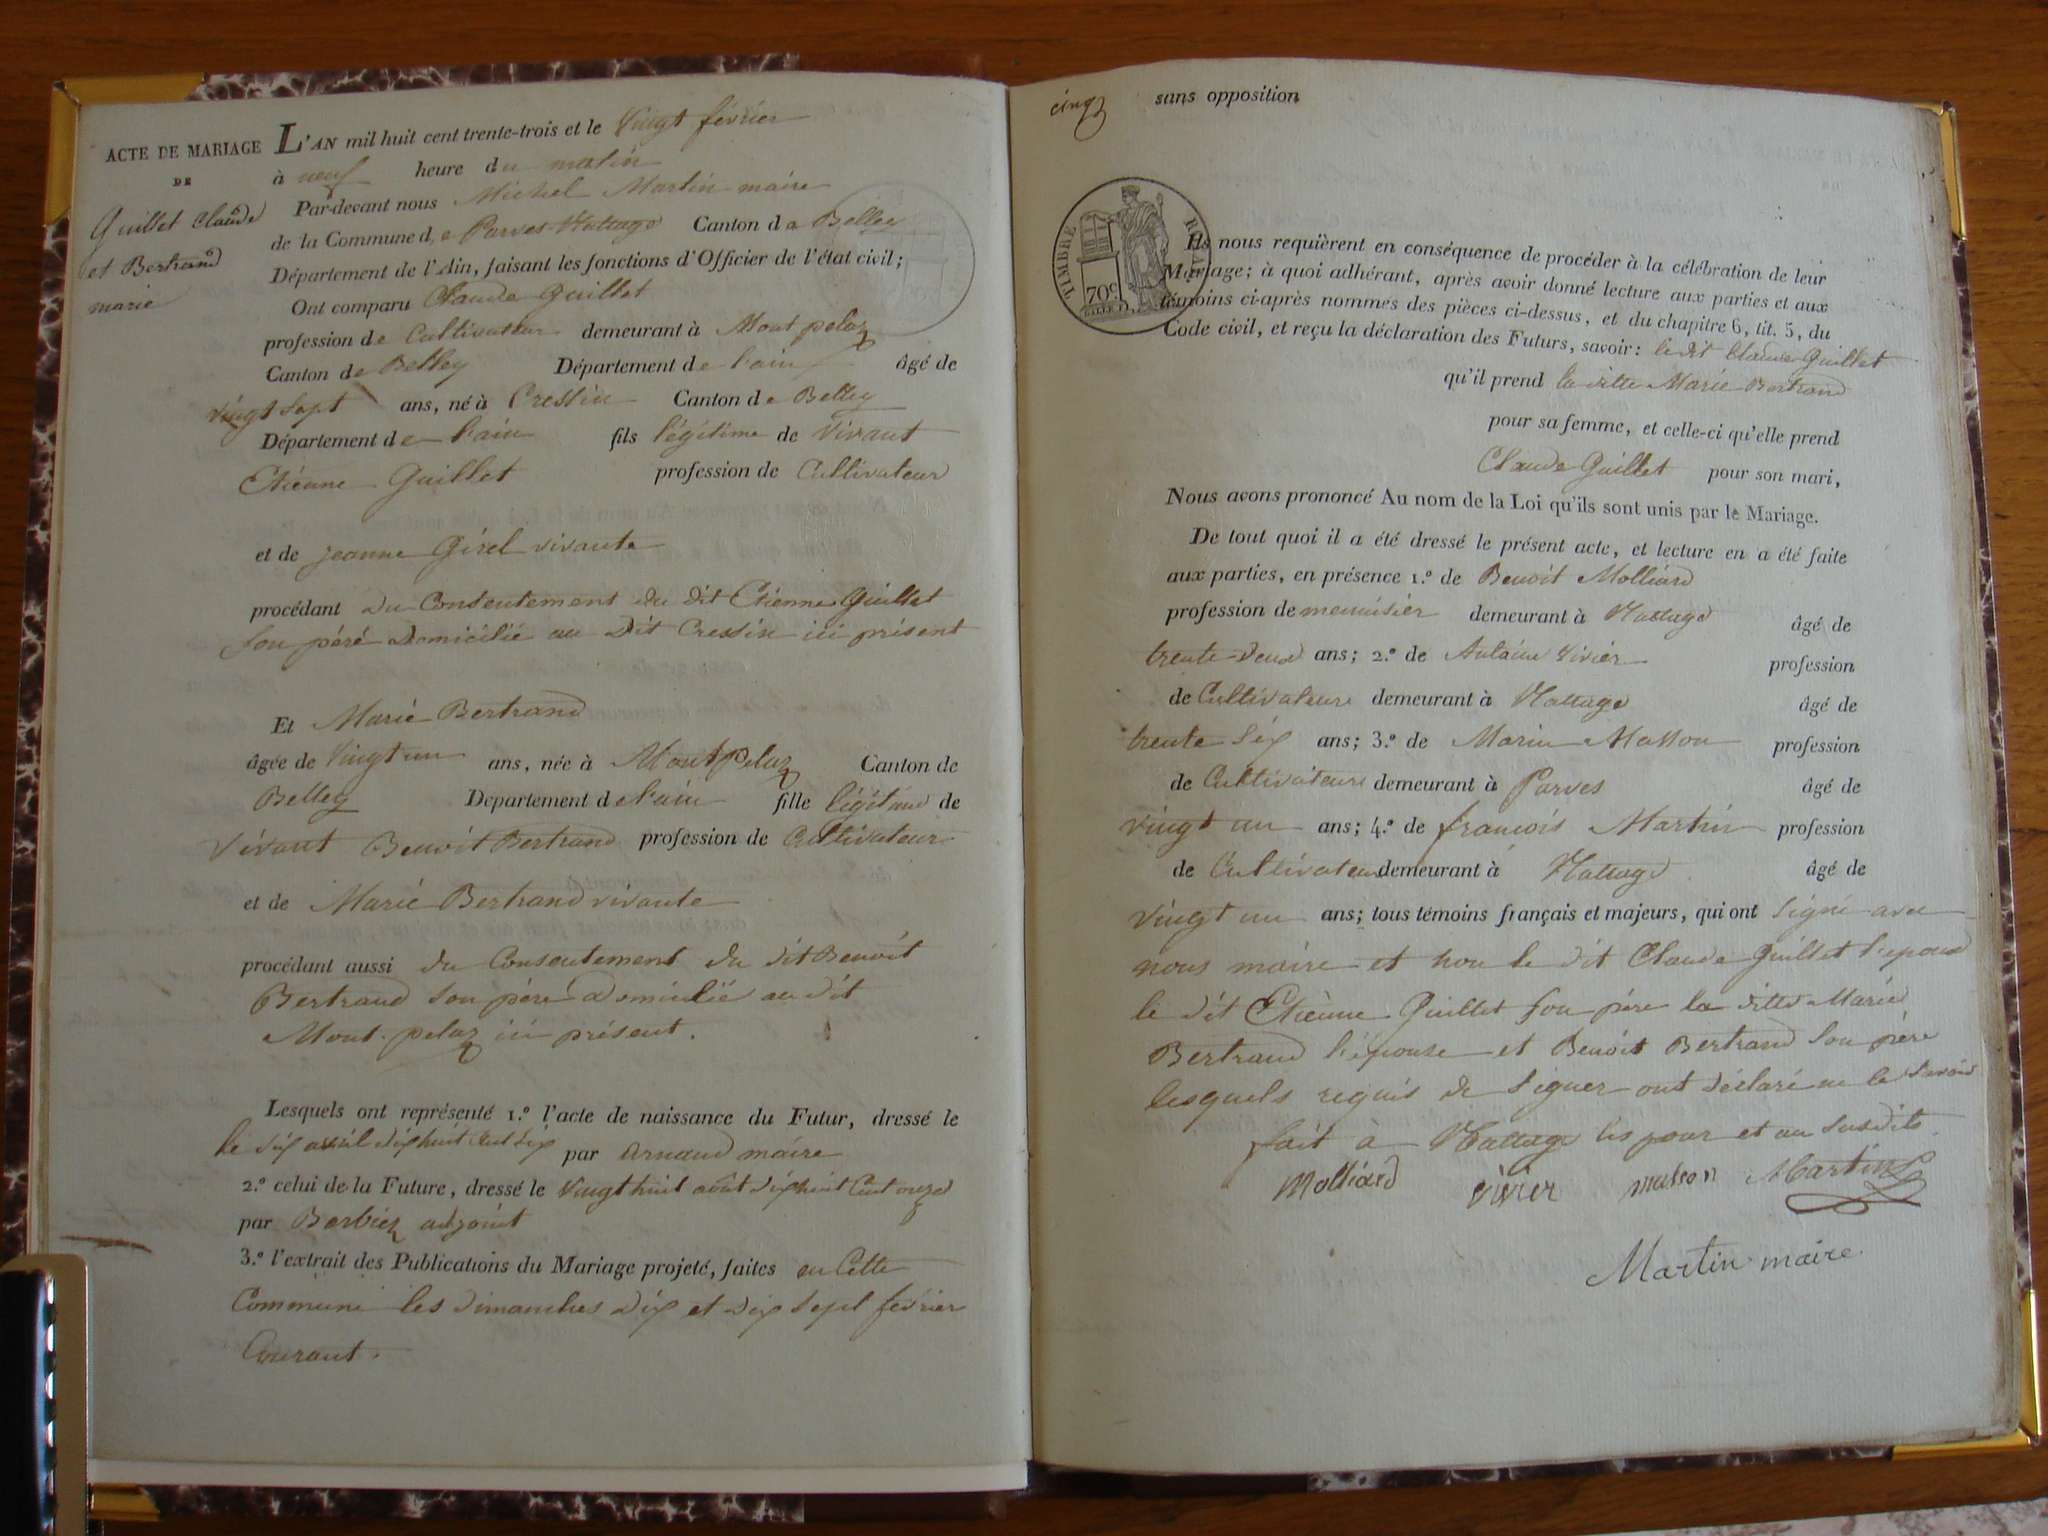 ACTE DE MARIAGE
DE
Guillet Claude
et Bertrand
marie
L'AN mil huit cent trente-trois et le Vingt février
à neuf heure du matin
Par-devant nous Michel Martin maire
de la Commune de Parves-Nattage Canton de Belley
Département de l'Ain, faisant les fonctions d'Officier de l'état civil;
Ont comparu Claude Guillet
profession de Cultivateur demeurant à Mont pelaz
Canton de Belley Département de l'ain âgé de
vingt sept ans, né à Cressin Canton de Belley
Département de l'ain fils légitime de Vivant
Etiénne Guillet profession de Cultivateur
et de jeanne Girel vivante
procédant du Consentement du dit Etienne Guillet
son péré domicilié au dit Cressin ici présent
Et Marié Bertrand
âgée de Vingt un ans, née à Mont Pelaz Canton de
Belley Departement de l'ain fille légitime de
Vivant Benoit Bertrand profession de Cultivateur
et de Marié Bertrand vivante
procédant aussi du Consentement du dit Benoit
Bertrand son péré domicilié au dit
Mont-pelaz ici présent.
Lesquels ont représenté 1.º l'acte de naissance du Futur, dressé le
le dix avril dix huit Cent six par Arnaud maire
2.º celui de la Future, dressé le Vingt huit août dix huit Cent onze
par Barbier adjoint
3.º l'extrait des Publications du Mariage projeté, faites en Cette
Commune les dimanches dix et dix sept février
Courant.
cinq sans opposition
TIMBRE ROYAL
70 c.
Ils nous requièrent en conséquence de procéder à la célébration de leur
Mariage; à quoi adhérant, après avoir donné lecture aux parties et aux
témoins ci-après nommés des pièces ci-dessus, et du chapitre 6, tit. 5, du
Code civil, et reçu la déclaration des Futurs, savoir: le dit Claude Guillet
qu'il prend la ditte Marie Bertrand
pour sa femme, et celle-ci qu'elle prend
Claude Guillet pour son mari,
Nous avons prononcé Au nom de la Loi qu'ils sont unis par le Mariage.
De tout quoi il a été dressé le présent acte, et lecture en a été faite
aux parties, en présence 1.º de Benoit Molliard
profession de menuisier demeurant à Nattage âgé de
trente-deux ans; 2.º de Antoine Vivier profession
de Cultivateur demeurant à Nattage âgé de
trente six ans; 3.º de Marin Masson profession
de Cultivateur demeurant à Parves âgé de
vingt un ans; 4.º de francois Martin profession
de Cultivateur demeurant à Nattage âgé de
vingt un ans; tous témoins français et majeurs, qui ont signé avec
nous maire et non le dit Claude Guillet l'epoux
le dit Etiènne Guillet son père la ditte Marié
Bertrand l'épouse et Benoit Bertrand son père
lesquels requis de signer ont déclaré ne le savoir
fait à Nattage les jour et an susdits
Molliard vivier masson Martin
Martin maire